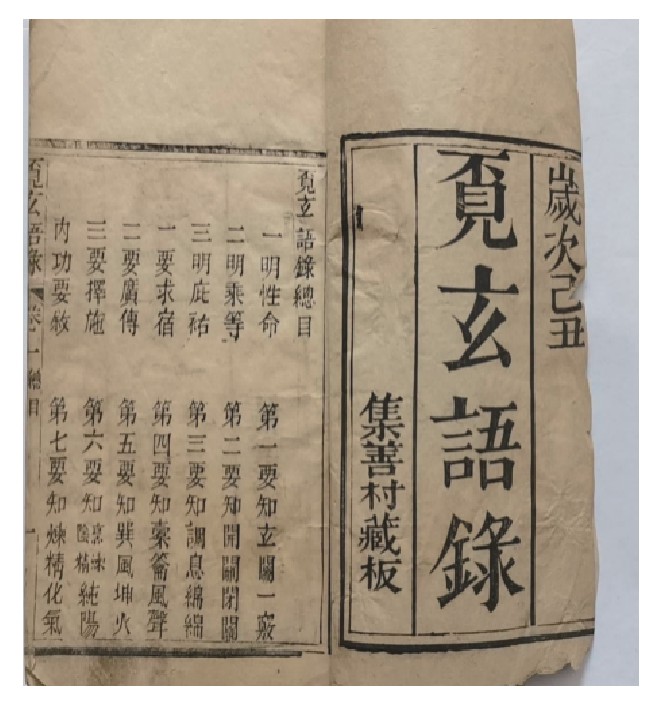 歲次己丑
覓玄語錄
集善村藏板
覓玄語錄總目
一明性命 第一要知玄關一竅
二明乘等 第二要知開關閉關
三明庇祐 第三要知調息綿綿
一要求宿 第四要知橐籥風聲
二要廣傳 第五要知巽風坤火
三要擇施 第六要知 純陽
內功要敘 第七要知煉精化氣
覓玄語錄 卷一 總目 一